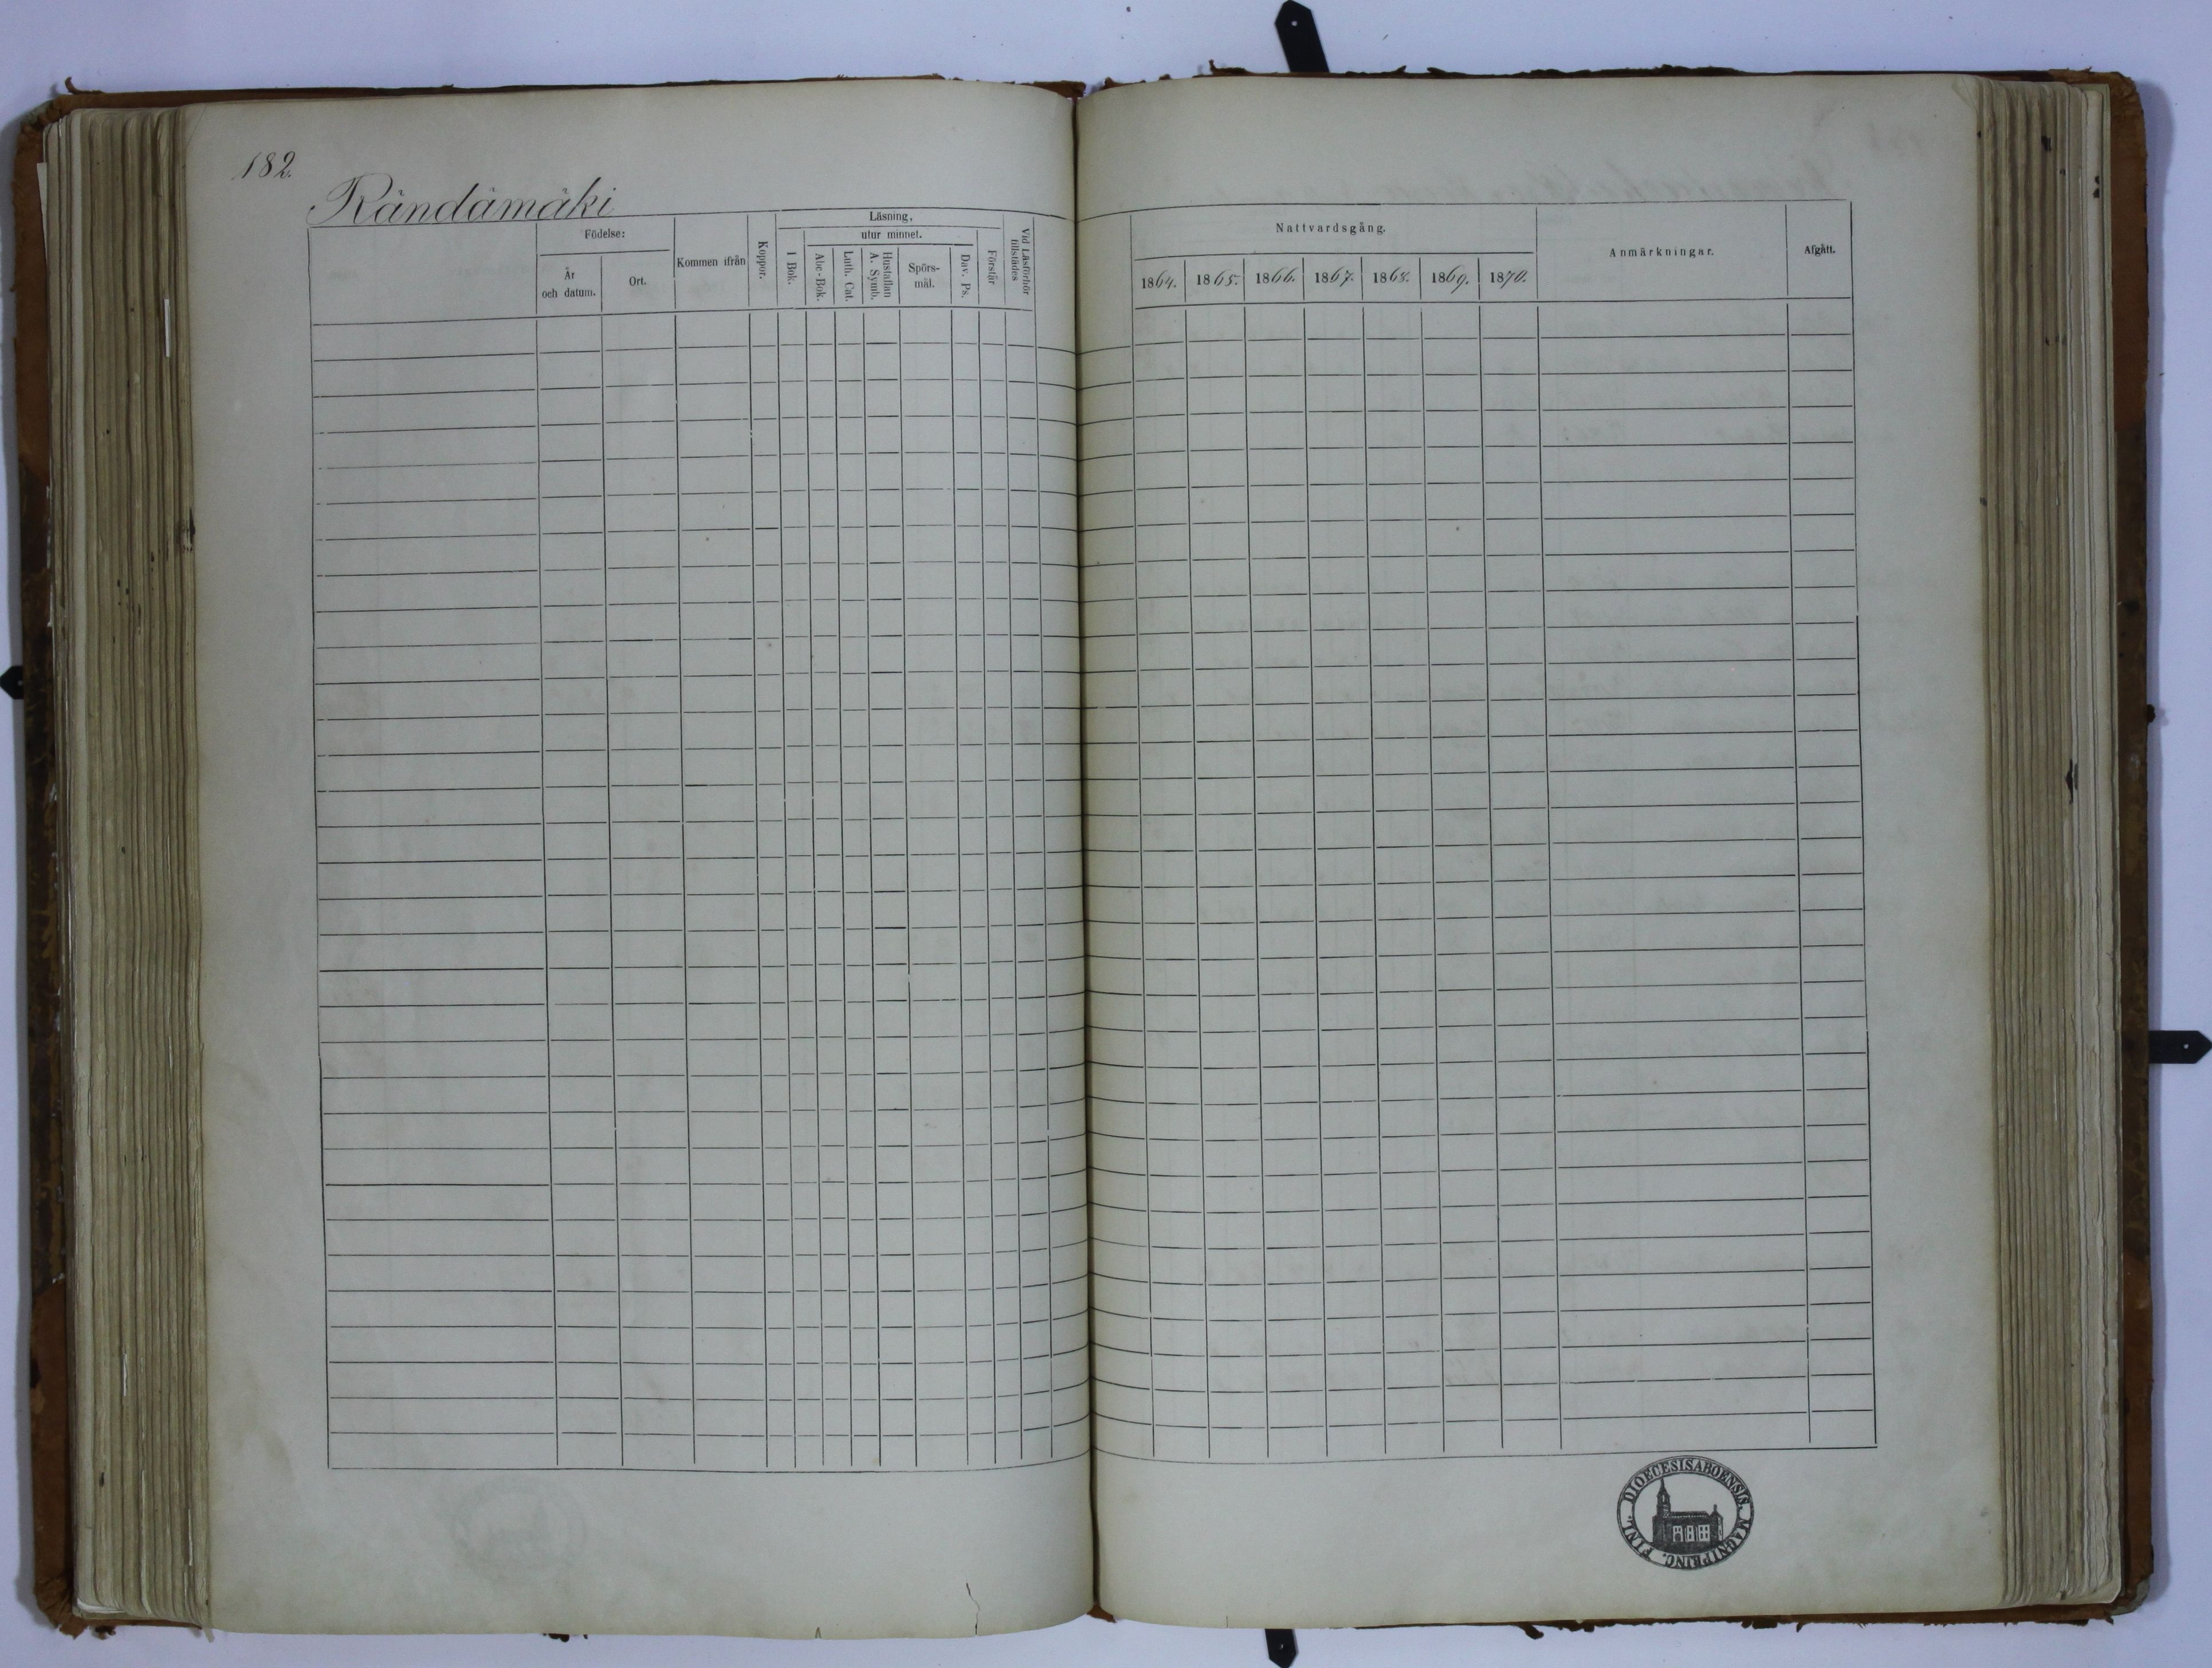 182.
Rändämäki
Födelse:
År
och datum.
Ort.
Kommen ifrån
Koppor.
Läsning,
I Bok.
utur minnet.
Abc-Bok.
Luth. Cat.
Hustaflan
A. Symb.
Spörs-
mål.
Dav. Ps.
Förstår
Vid Läsförhör
tillstädes
Nattvardsgång.
1864.
1865.
1866.
1867.
1868.
1869.
1870.
Anmärkningar.
Afgått.
DIOECESIS ABOENSIS. MAGNI PRINC. FINL.